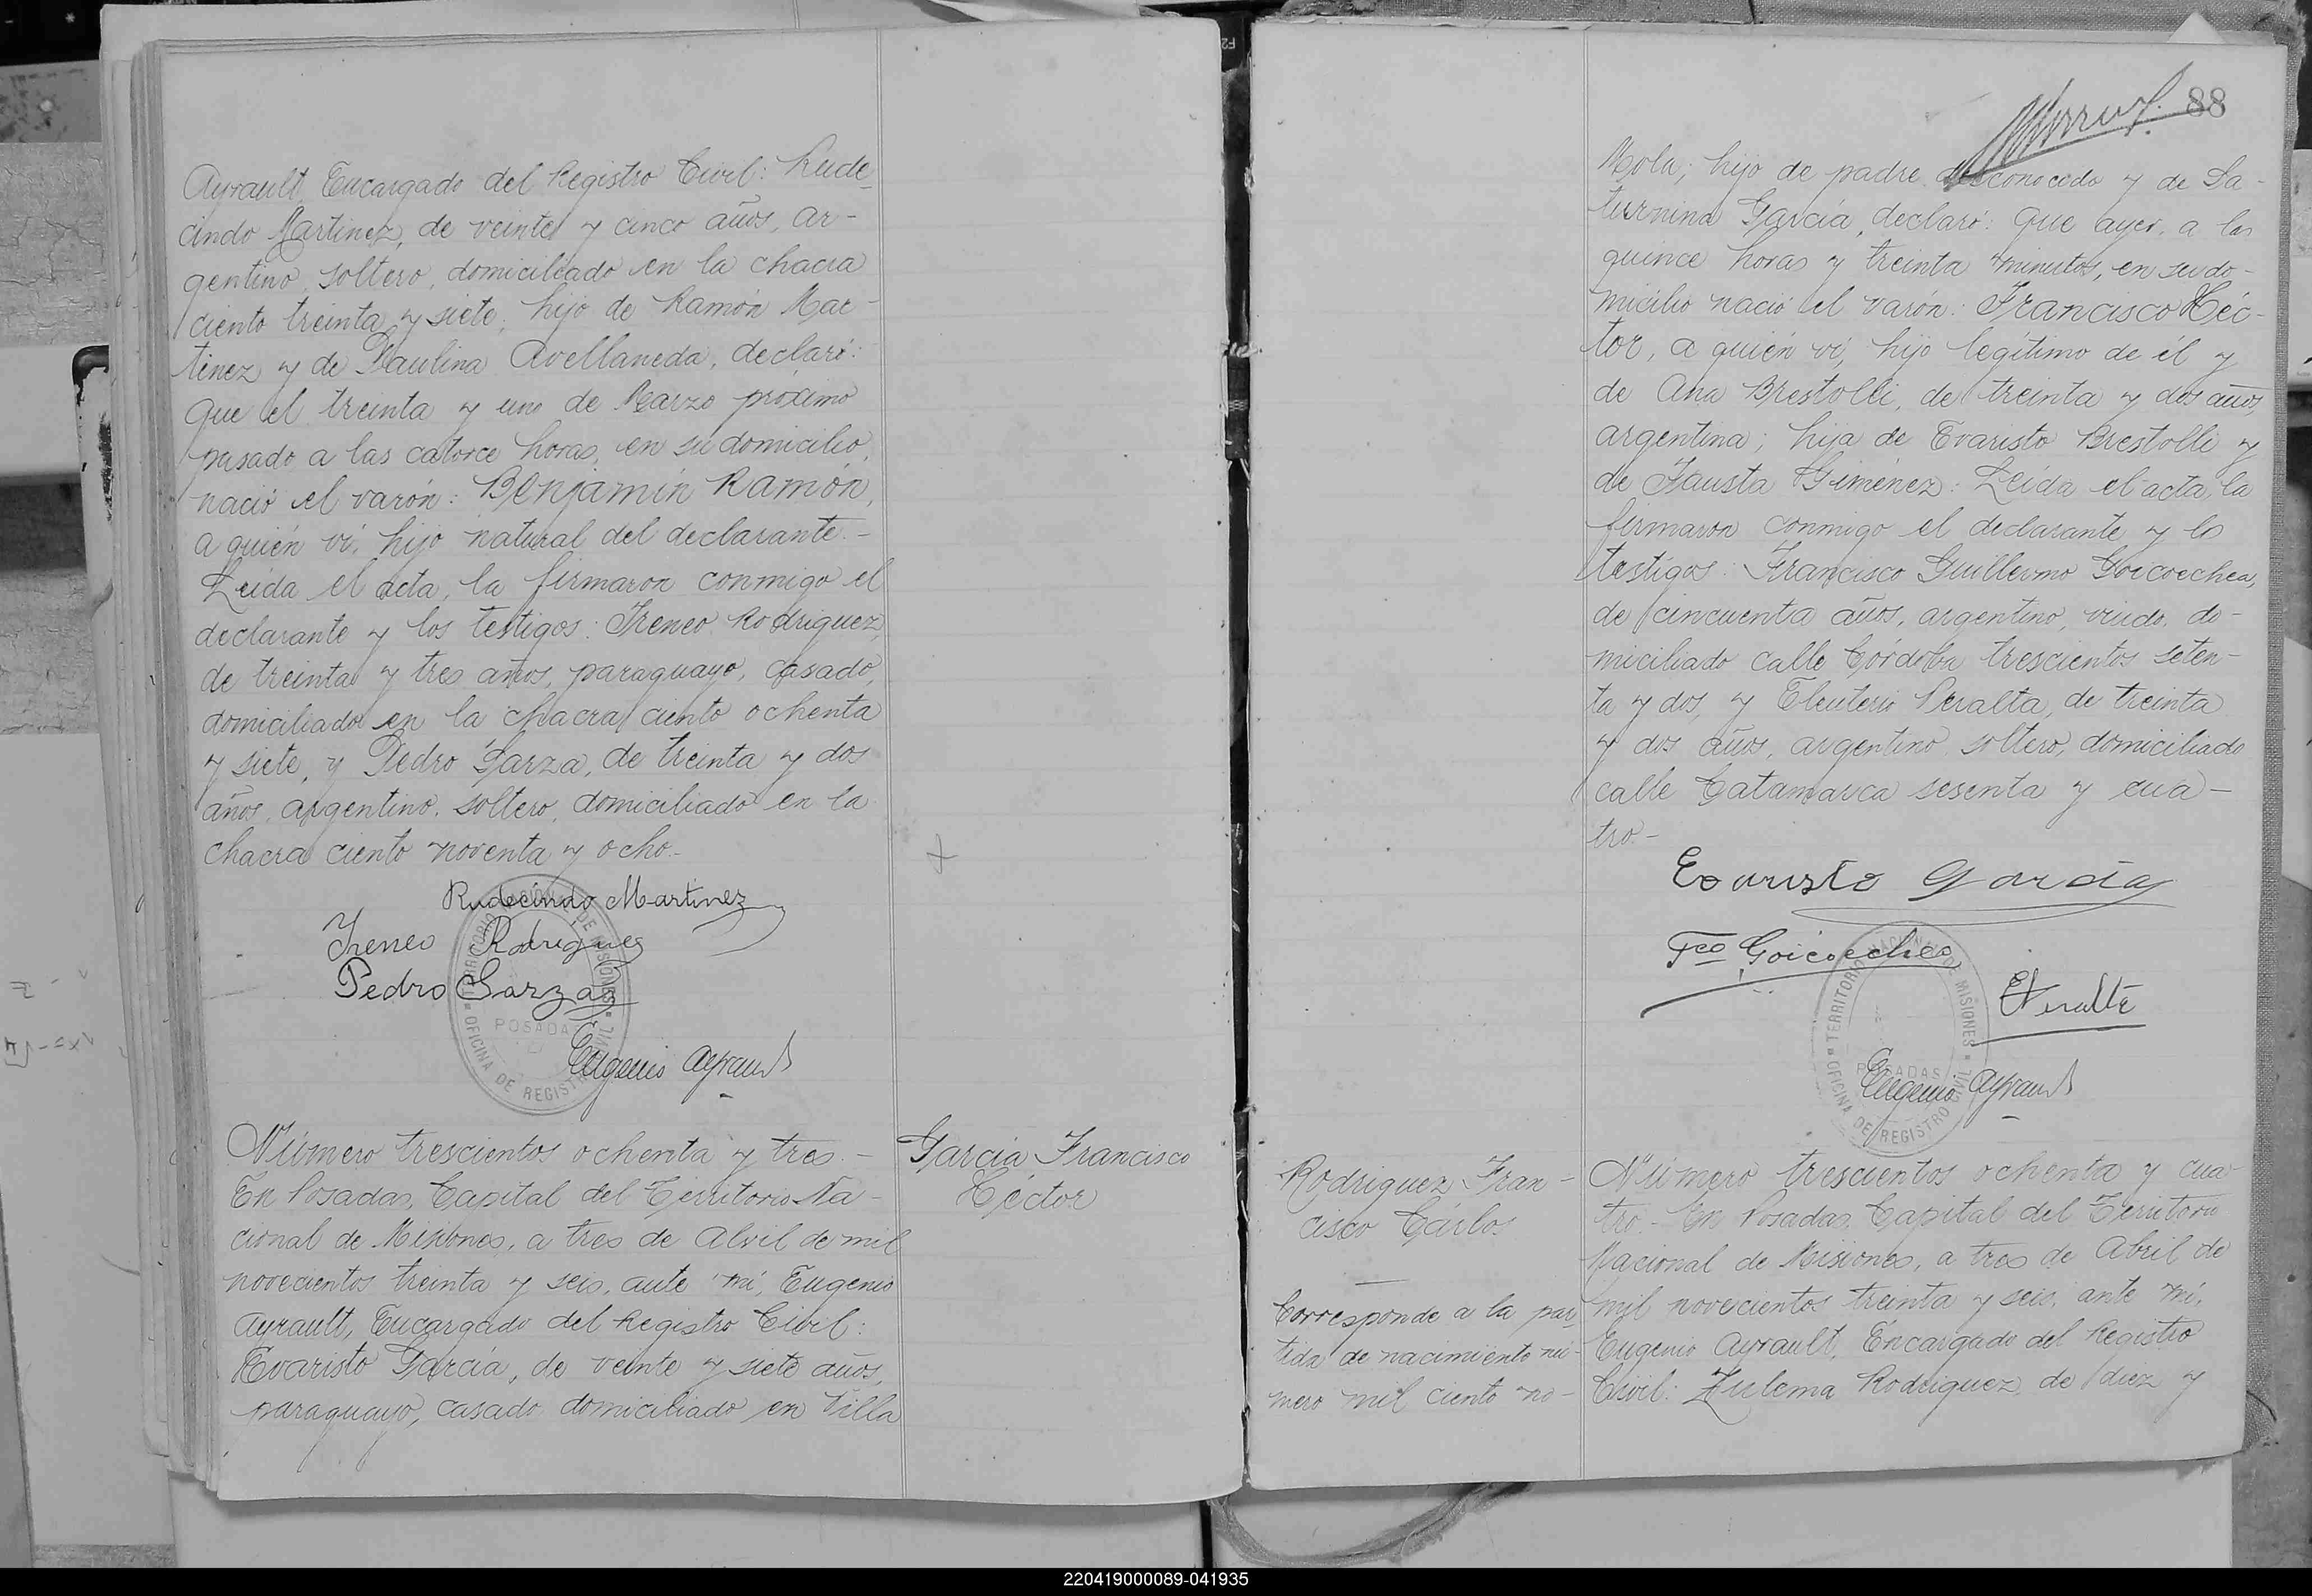 Ayrault, Encargado del Registro Civil: Rude-
cindo Martinez, de veinte y cinco años, ar-
gentino, soltero, domiciliado en la chacra
ciento treinta y siete, hijo de Ramón Mar-
tinez y de Paulina Avellaneda, declaró:
Que el treinta y uno de Marzo próximo
pasado a las catorce horas, en su domicilio,
nació el varón: Benjamín Ramón,
a quién ví, hijo natural del declarante.-
Leída el acta, la firmaron conmigo el
declarante y los testigos: Ireneo Rodriguez,
de treinta y tres años, paraguayo, casado,
domiciliado en la chacra ciento ochenta
y siete, y Pedro Garza, de treinta y dos
años, argentino, soltero, domiciliado en la
chacra ciento noventa y ocho.-
Rudecindo Martinez
Ireneo Rodriguez
Pedro Garza
TERRITORIO NACIONAL DE MISIONES
POSADAS
OFICINA DE REGISTRO CIVIL
Eugenio Ayrault
Número trescientos ochenta y tres.-
En Posadas, Capital del Territorio Na-
cional de Misiones, a tres de Abril de mil
novecientos treinta y seis, ante mí, Eugenio
Ayrault, Encargado del Registro Civil:
Evaristo García, de veinte y siete años,
paraguayo, casado, domiciliado en Villa
García Francisco
Héctor
88
Mola; hijo de padre desconocido y de Sa-
turnina García, declaró: Que ayer, a las
quince horas y treinta minutos, en su do-
micilio nació el varón: Francisco Héc-
tor, a quién ví, hijo legítimo de él y
de Ana Brestolli, de treinta y dos años,
argentina; hija de Evaristo Brestolli y
de Fausta Gimenez: Leída el acta, la
firmaron conmigo el declarante y los
testigos: Francisco Guillermo Goicoechea,
de cincuenta años, argentino, viudo, do-
miciliado calle Córdoba trescientos seten-
ta y dos, y Eleuterio Peralta, de treinta
y dos años, argentino, soltero, domiciliado
calle Catamarca sesenta y cua-
tro.-
Evaristo García
Fco Goicoechea
EPeralta
TERRITORIO NACIONAL DE MISIONES
POSADAS
OFICINA DE REGISTRO CIVIL
Eugenio Ayrault
Rodriguez Fran-
cisco Cárlos
Corresponde a la par-
tida de nacimiento nú-
mero mil ciento no-
Número trescientos ochenta y cua-
tro.- En Posadas, Capital del Territorio
Nacional de Misiones, a tres de Abril de
mil novecientos treinta y seis, ante mí,
Eugenio Ayrault, Encargado del Registro
Civil: Zulema Rodriguez, de diez y
220419000089-041935